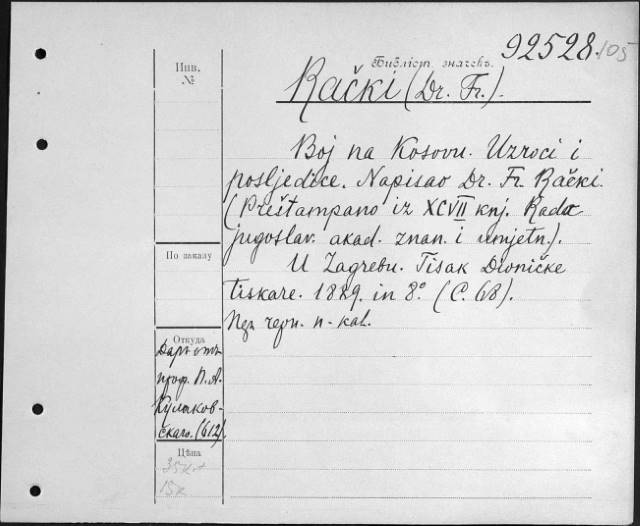 92528.105
Библіот. значекъ.
Инв.
№
Rački (Dr. Fr.).
Boj na Kosovu. Uzroci i
posljedice. Napisao Dr. Fr. Rački.
(Prištampano iz XCVII knj. Rada
jugoslav. akad. znan. i umjetn.).
U Zagrebu. Tisak Dioničke
tiskare. 1889. in 8° (C. 68).
По заказу
Откуда
Даръ отъ
проф. П. А.
Кулаков-
скаго. (612).
Цѣна
35к.+
15к